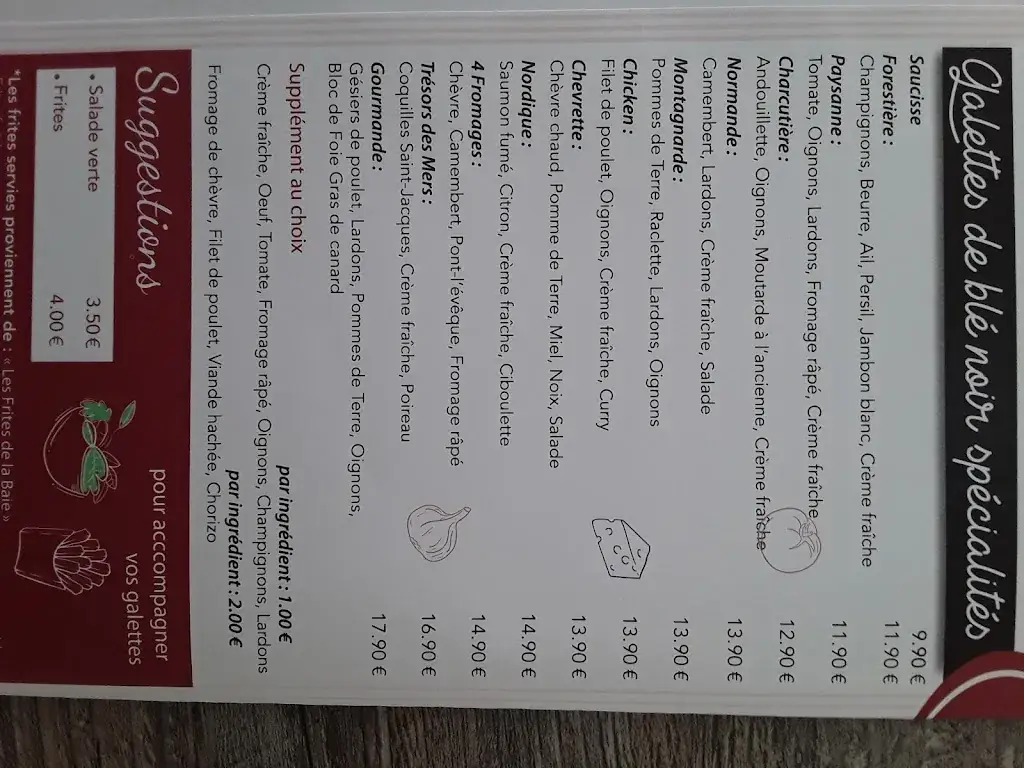 Galettes de blé noir spécialités
Saucisse 9.90 €
Forestière : 11.90 €
Champignons, Beurre, Ail, Persil, Jambon blanc, Crème fraîche
Paysanne : 11.90 €
Tomate, Oignons, Lardons, Fromage râpé, Crème fraîche
Charcutière : 12.90 €
Andouillette, Oignons, Moutarde à l'ancienne, Crème fraîche
Normande : 13.90 €
Camembert, Lardons, Crème fraîche, Salade
Montagnarde : 13.90 €
Pommes de Terre, Raclette, Lardons, Oignons
Chicken : 13.90 €
Filet de poulet, Oignons, Crème fraîche, Curry
Chevrette : 13.90 €
Chèvre chaud, Pomme de Terre, Miel, Noix, Salade
Nordique : 14.90 €
Saumon fumé, Citron, Crème fraîche, Ciboulette
4 Fromages : 14.90 €
Chèvre, Camembert, Pont-l'évêque, Fromage râpé
Trésors des Mers : 16.90 €
Coquilles Saint-Jacques, Crème fraîche, Poireau
Gourmande : 17.90 €
Gésiers de poulet, Lardons, Pommes de Terre, Oignons,
Bloc de Foie Gras de canard
Supplément au choix
par ingrédient : 1.00 €
Crème fraîche, Oeuf, Tomate, Fromage râpé, Oignons, Champignons, Lardons
par ingrédient : 2.00 €
Fromage de chèvre, Filet de poulet, Viande hachée, Chorizo
Suggestions
pour acccompagner
vos galettes
• Salade verte 3.50 €
• Frites 4.00 €
*Les frites servies proviennent de : « Les Frites de la Baie »